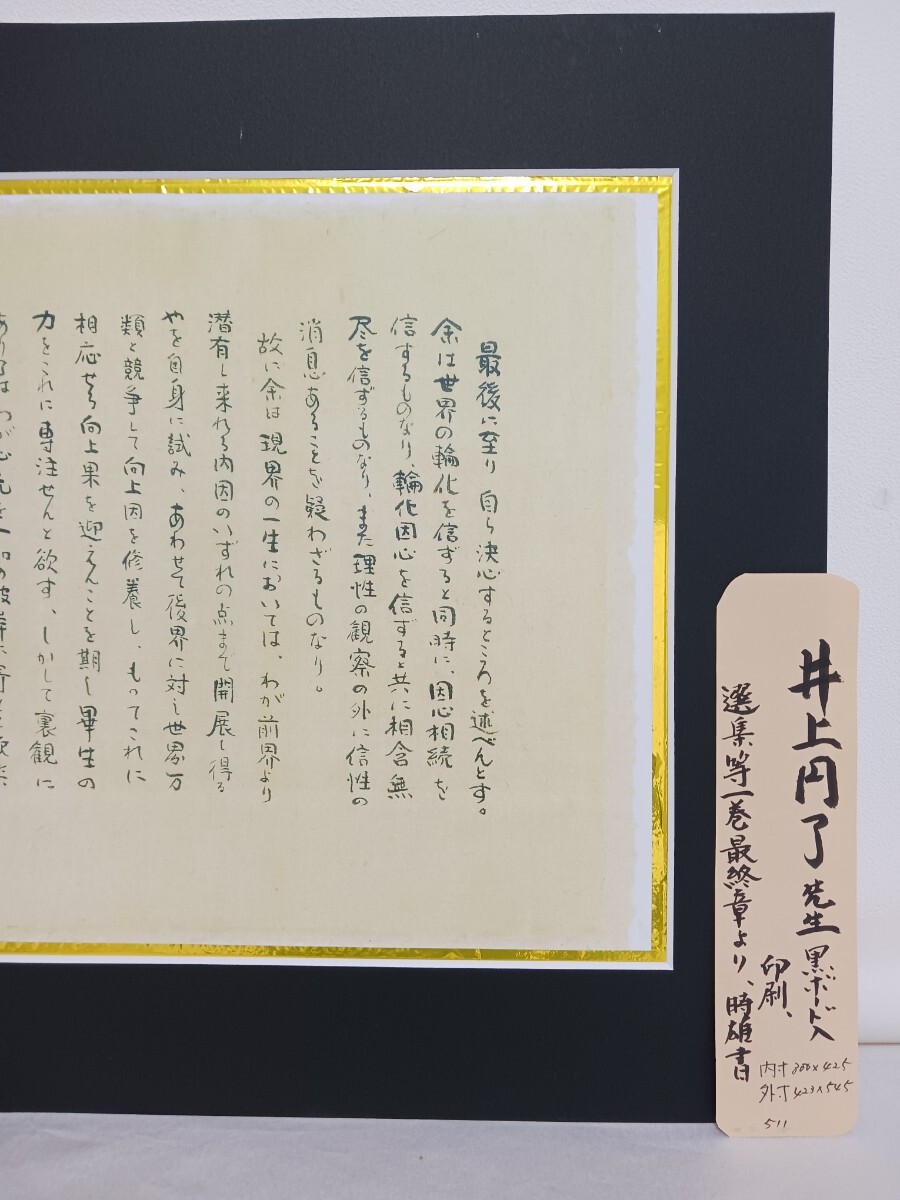 最後に至り自ら決心するところを述べんとす。
余は世界の輪化を信ずると同時に、因心相続を
信ずるものなり、輪化因心を信ずると共に相含無
尽を信ずるものなり、また理性の観察の外に信性の
消息あることを疑わざるものなり。
故に余は現界の一生においては、わが前界より
潜有し来れる内因のいずれの点まで開展し得る
やを自身に試み、あわせて後界に対し世界万
類と競争して向上因を修養し、もってこれに
相応せる向上果を迎えんことを期し畢生の
力をこれに専注せんと欲す、しかして裏観に
井上円了先生
黒ボード入
印刷、
選集等一巻最終章より、時雄書
内寸300×425
外寸423×545
511